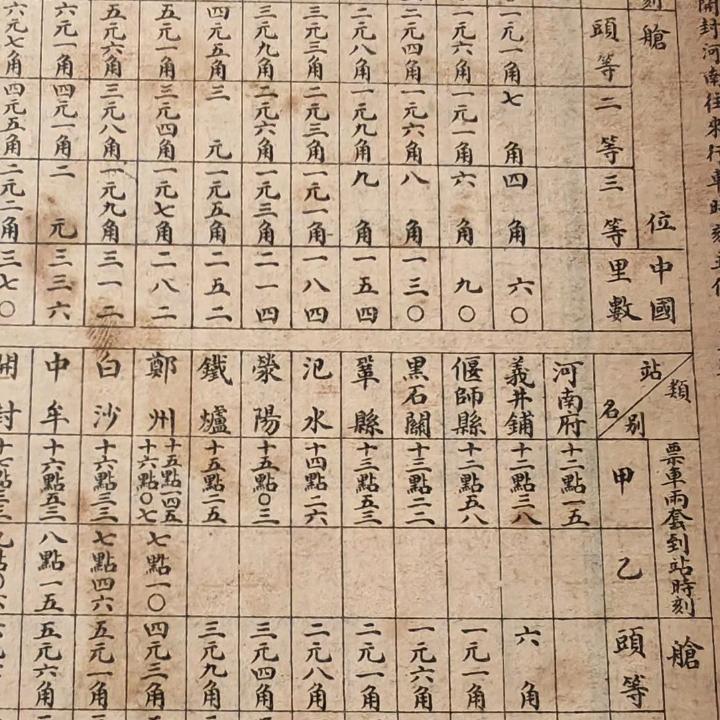 開封河南往來行車時刻
艙位 中國
頭等 二等 三等 里數
一元一角 七角 四角 六〇
一元六角 一元一角 六角 九〇
二元四角 一元六角 八角 一三〇
二元八角 一元九角 九角 一五四
三元三角 二元三角 一元一角 一八四
三元九角 二元六角 一元三角 二一四
四元五角 三元 一元五角 二五二
五元一角 三元四角 一元七角 二八二
五元六角 三元八角 一元九角 三一二
六元一角 四元一角 二元 三三六
六元七角 四元五角 二元二角 三七〇
類別 票車兩套到站時刻 艙
站名 甲 乙 頭等
河南府 十二點一五
義井鋪 十二點三八 六角
偃師縣 十二點五八 一元一角
黑石關 十三點二二 一元六角
鞏縣 十三點五三 二元一角
汜水 十四點二六 二元八角
滎陽 十五點〇三 三元四角
鐵爐 十五點二五 三元九角
鄭州 十五點四五 十六點〇七 七點一〇 四元三角
白沙 十六點三三 七點四六 五元一角
中牟 十六點五三 八點一五 五元六角
開封 十七點三三